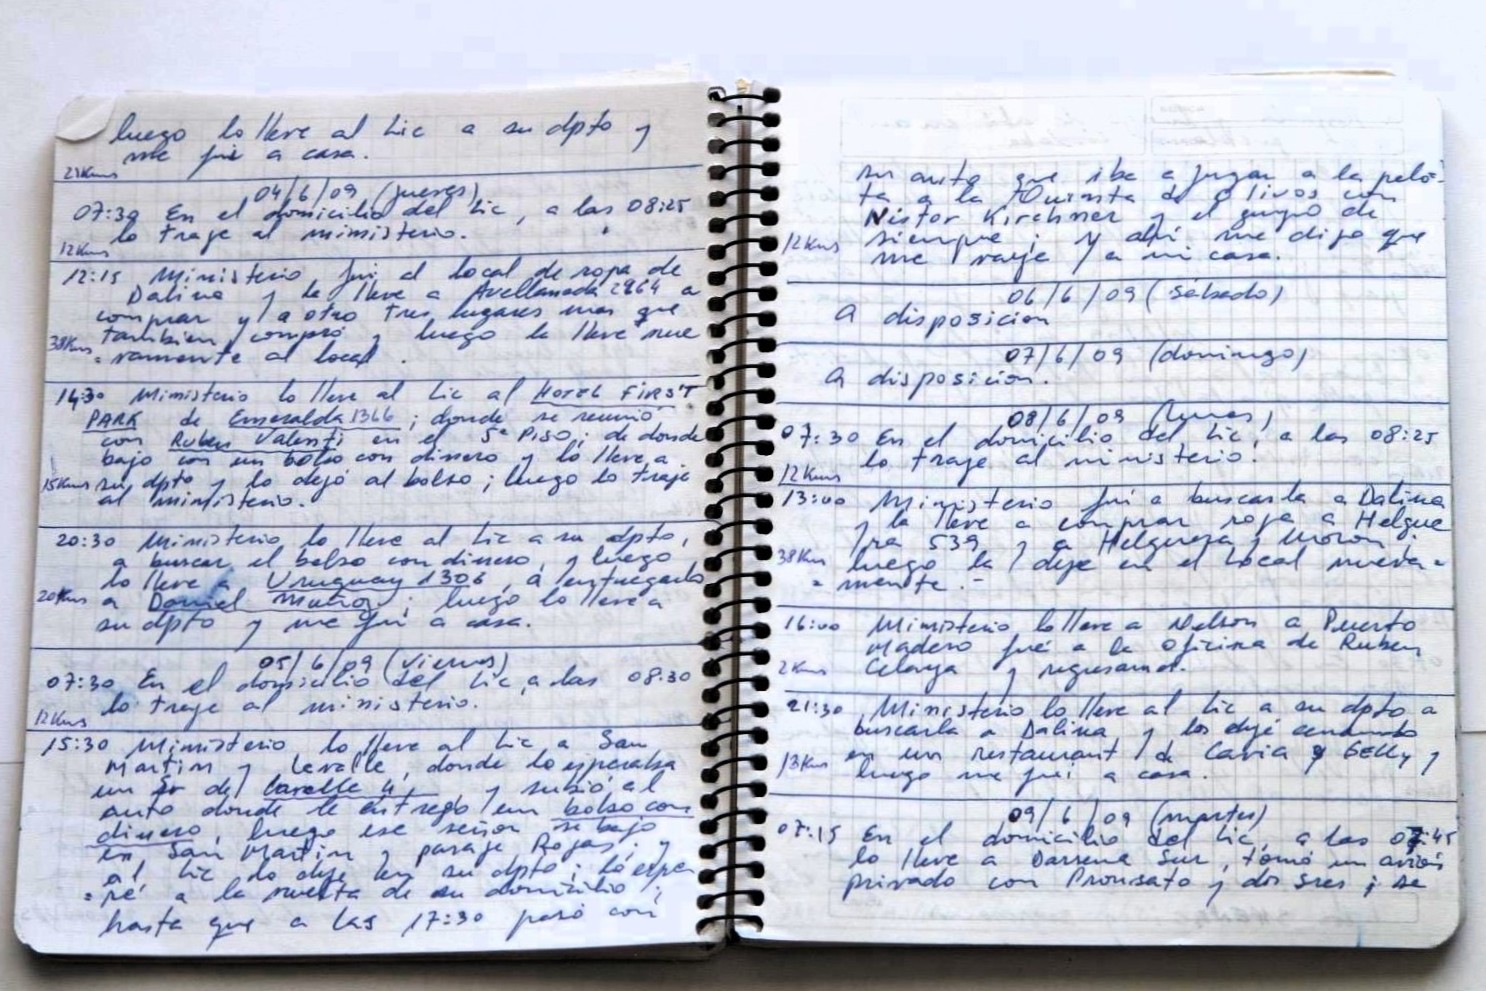 luego lo lleve al Lic a su dpto y
me fui a casa.
21Kms
04/6/09 (jueves)
07:30 En el domicilio del Lic, a las 08:25
lo traje al ministerio.
12Kms
12:15 Ministerio, fui al local de ropa de
Dalina y la lleve a Avellaneda 2964 a
comprar y a otro tres lugares mas que
también compró y luego la lleve nue
38Kms = vamente al local.
14:30 Ministerio lo lleve al Lic al HOTEL FIRST
PARK de Esmeralda 1366; donde se reunió
con Ruben Valenti en el 5° PISO; de donde
bajo con un bolso con dinero y lo lleve a
15Kms su dpto y lo dejó al bolso; luego lo traje
al ministerio.
20:30 Ministerio lo lleve al Lic a su dpto,
a buscar el bolso con dinero, y luego
lo lleve a Uruguay 1306, a entregarlo
20Kms a Daniel Muñoz; luego lo lleve a
su dpto y me fui a casa.
05/6/09 (viernes)
07:30 En el domicilio del Lic, a las 08:30
lo traje al ministerio.
12Kms
15:30 Ministerio, lo lleve al Lic a San
Martin y Levalle, donde lo esperaba
un Sr de y subió al
auto donde le entregó un bolso con
dinero, luego ese señor se bajo
en San Martin y pasaje Rojas; y
al Lic lo deje en su dpto; lo espe
= ré a la vuelta de su domicilio,
hasta que a las 17:30 pasó con
su auto que iba a jugar a la pelo-
ta a la Quinta de Olivos con
Nestor Kirchner y el grupo de
12Kms siempre; y ahí me dijo que
me vaya a mi casa.
06/6/09 (Sábado)
A disposicion
07/6/09 (domingo)
A disposicion.
08/6/09 (lunes)
07:30 En el domicilio del Lic, a las 08:25
lo traje al ministerio.
12Kms
13:00 Ministerio fui a buscarla a Dalina
y la lleve a comprar ropa a Helgue
ra 539 y a Helguera y Moron.
38Kms luego la deje en el local nueva=
= mente.-
16:00 Ministerio lo lleve a Nelson a Puerto
Madero fué a la oficina de Ruben
2Kms Celaya y regresamos.
21:30 Ministerio lo lleve al Lic a su dpto a
buscarla a Dalina y los dejé cenando
en un restaurant de Cavia y Gelly y
13Kms luego me fui a casa.
09/6/09 (martes)
07:15 En el domicilio del Lic, a las 07:45
lo lleve a Darsena Sur, tomó un avión
privado con Pronsato y dos sres; se